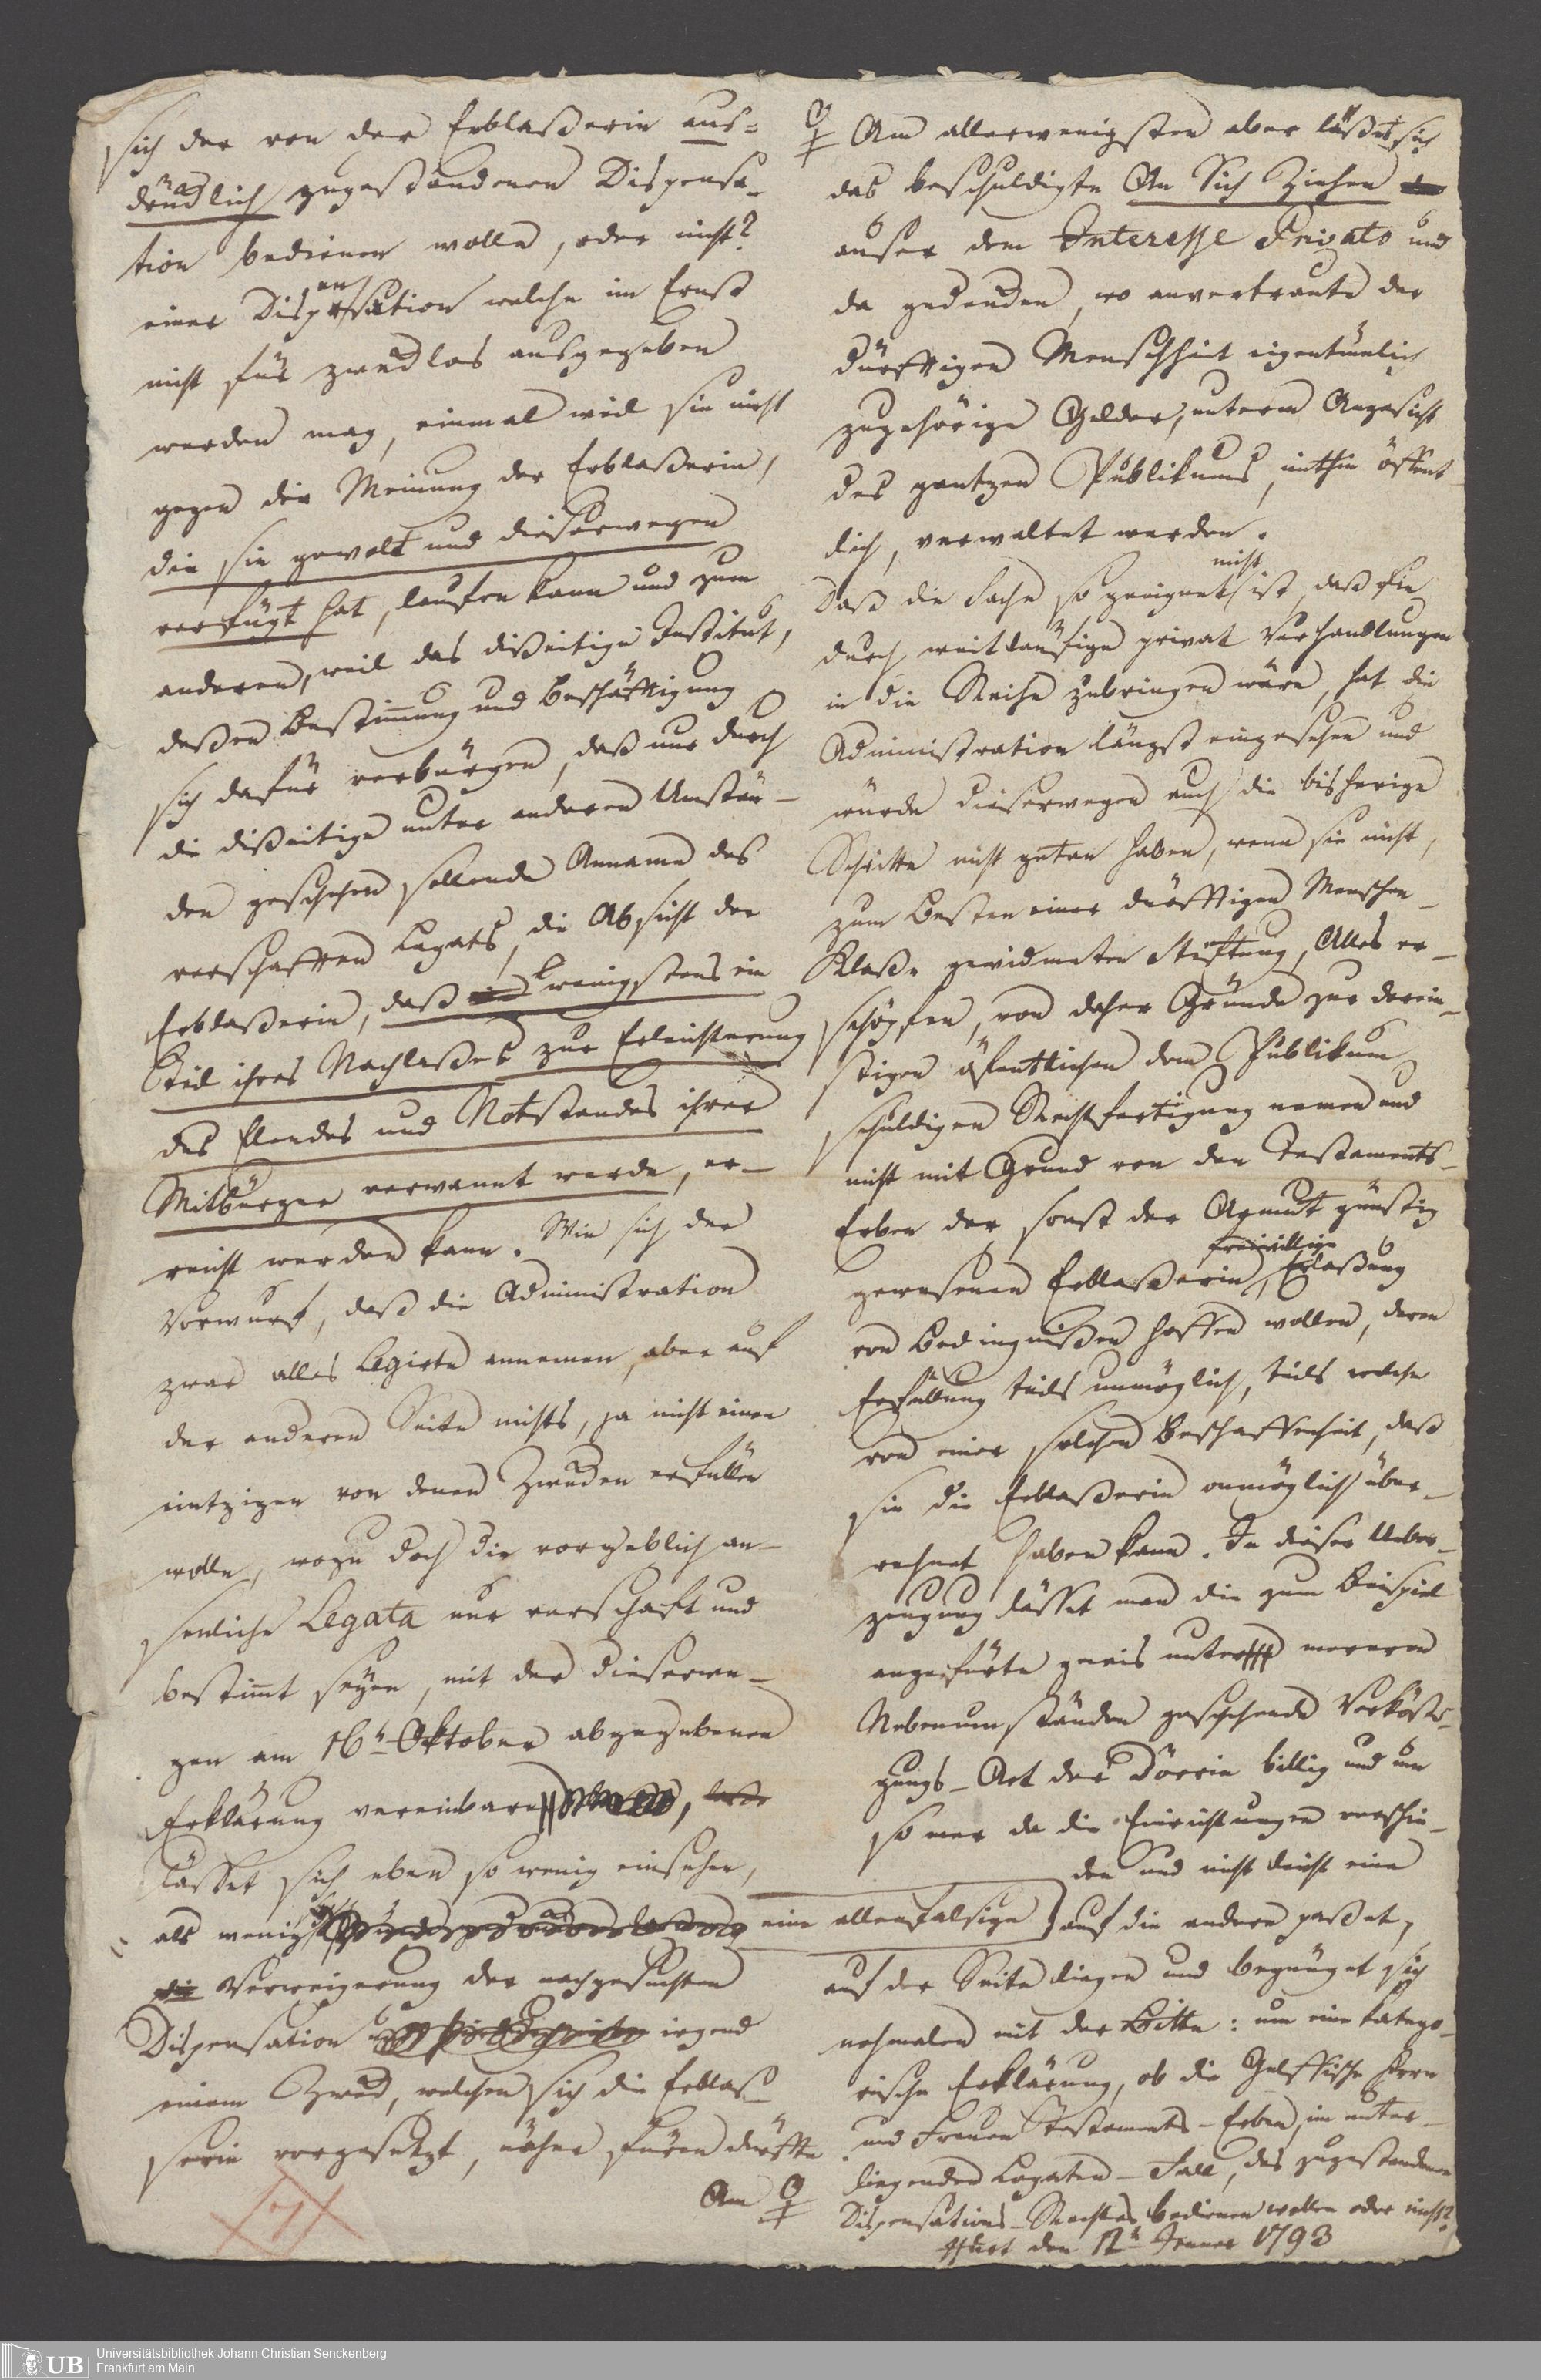 sich der von der Erblaßerin aus=
drücklich zugestandenen Dispensa-
tion bedienen wolle, oder nicht?
einer Dispensation welche im Ernst
nicht für zwecklos ausgegeben
werden mag, einmal weil sie nicht
gegen die Meinung der Erblaßerin,
die sie gewolt und dieserwegen
verfügt hat, laufen kann und zum
anderen, weil das dißeitige Institut,
deßen Bestimung und Beschäftigung
sich dafür verbürgen, daß nur durch
die dißeitige unter anderen Umstän-
den geschehen sollende Anname des
verschafften Legats, die Absicht der
Erblaßerin, daß wenigstens ein
Teil ihres Nachlaßes zur Erleichterung
des Elendes und Notstandes ihrer
Mitbürger verwannt werde, er-
reicht werden kann. Wie sich der
Vorwurf, daß die Administration
zwar alles Legirte annemen, aber auf
der anderen Seite nichts, ja nicht einen
eintzigen von denen Zwecken erfüllen
wolle, wozu doch die vorgeblich an-
senliche Legata nur verschaft und
bestimt seyen, mit der dieserwe-
gen am 16n Oktober abgegebenen
Erklärung vereinbare,
lässet sich eben so wenig einsehen,
als wenig eine allenfalsige
die Verweigerung der nachgesuchten
Dispensation irgend
einem Zweck, welchen sich die Erblaß-
serin vorgesetzt, näher füren dürfte
Am ♀
♀ Am allerwenigsten aber läßet sich
das beschuldigte An Sich Ziehen
auser dem Interesse Privato und
da gedenken, wo anvertraute der
dürfftigen Menschheit eigentümlich
zugehörige Gelder, unterm Angesicht
des gantzen Publikums, mithin öffent-
lich, verwaltet werden.
Daß die Sache so geeignet nicht ist, daß sie
durch weitläufige privat Verhandlungen
in die Reihe zubringen wäre, hat die
Administration längst eingesehen und
würde dieserwegen auch die bisherige
Schritte nicht getan haben, wenn sie nicht,
zum Besten einer dürfftigen Menschen-
Klaße gewidmeten Stiftung, Alles er-
schöpfen, von daher Gründe zur derein-
stigen öfentlichen dem Publikum
schuldigen Rechtfertigung nemen und
nicht mit Grund von den Testaments-
Erben der sonst der Armut günstig
gewesenen Erblaßerin, freiwillige Erlaßung
von Bedingnißen hoffen wollen, deren
Erfüllung teils unmöglich, teils welche
von einer solchen Beschaffenheit, daß
sie die Erblaßerin onmöglich über-
rechnet haben kann. In dieser Ueber-
zeugung lässet man die zum Beispiel
angefürte gewis unter mereren
Nebenumständen geschehende Verkösti-
gungs-Art der Dörrin billig und um
so mer da die Einrichtungen verschie-
den und nicht leicht eine
auf die andere paßet,
auf der Seite liegen und begnüget sich
nochmalen mit der Bitte: um eine katego-
rische Erklärung, ob die Gulffische Herrn
und Frauen Testaments-Erben, im unter-
liegenden Legaten-Fall, des zugestandenen
Dispensations-Rechtes bedienen wollen oder nicht?
Ffurt den 12n Jenner 1793
Universitätsbibliothek Johann Christian Senckenberg
Frankfurt am Main
UB